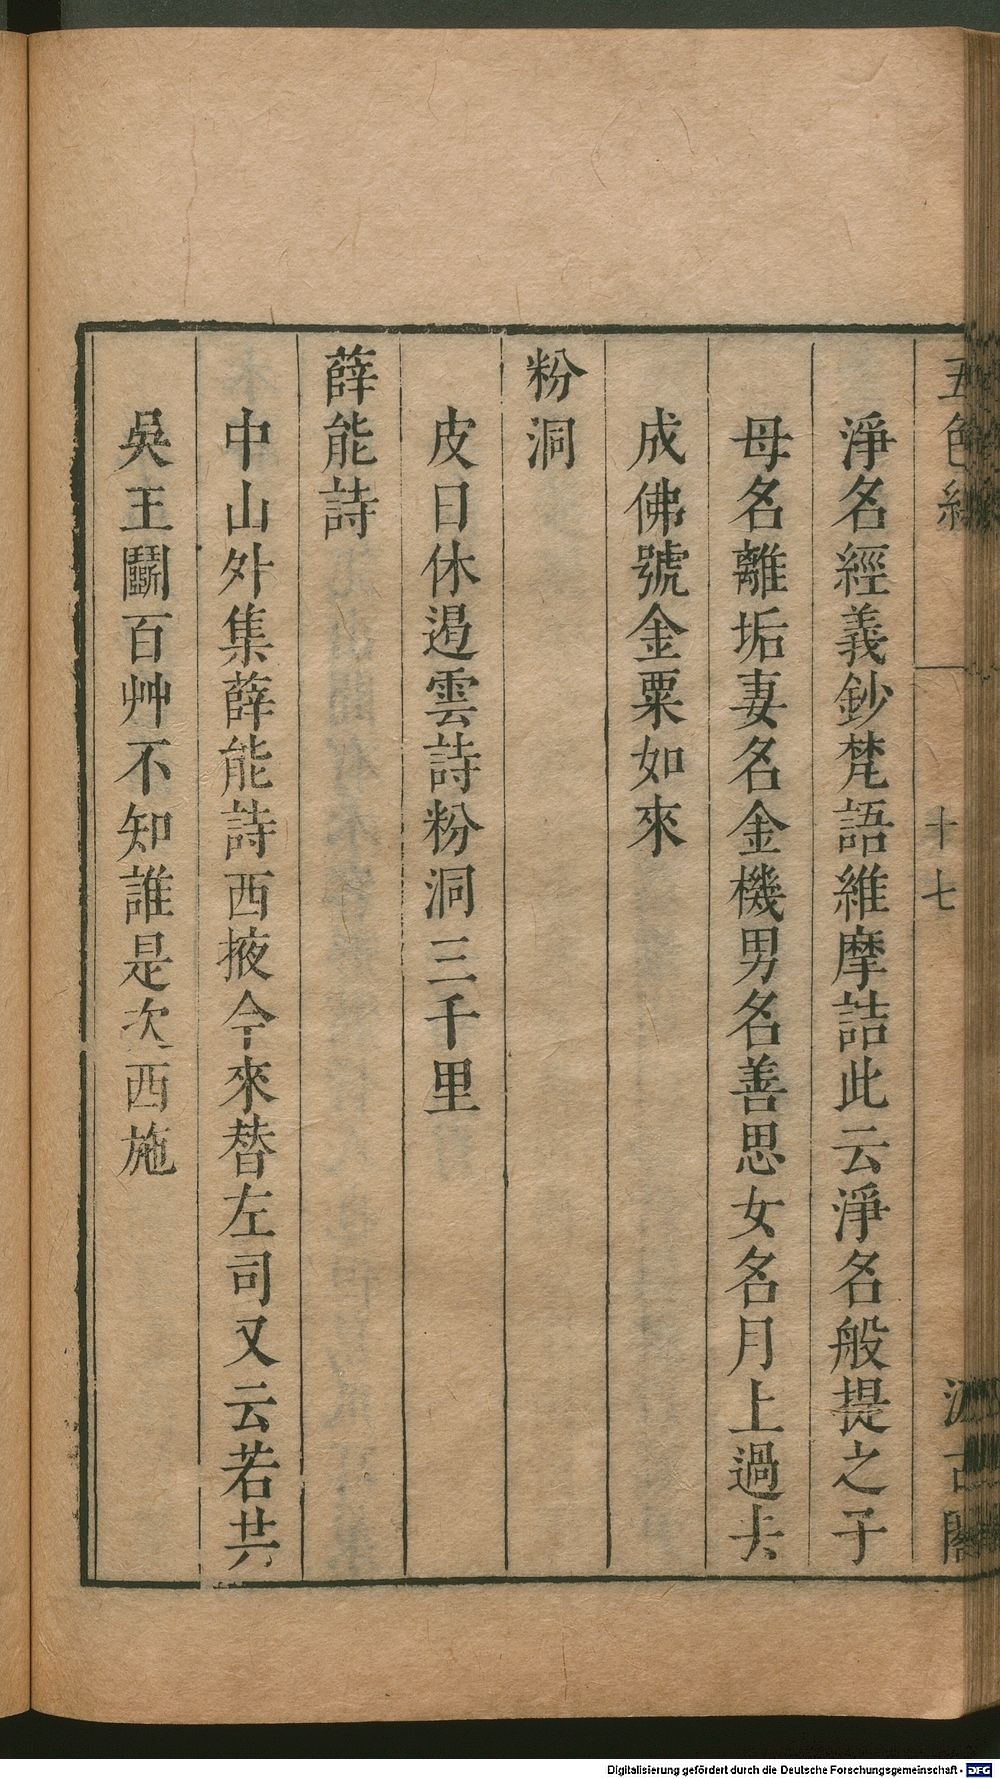 五色線
十七
汲古閣
淨名經義鈔梵語維摩詰此云淨名般提之子
母名離垢妻名金機男名善思女名月上過去
成佛號金粟如來
粉洞
皮日休遏雲詩粉洞三千里
薛能詩
中山外集薛能詩西掖今來替左司又云若共
吳王鬭百艸不知誰是次西施
Digitalisierung gefördert durch die Deutsche Forschungsgemeinschaft - DFG